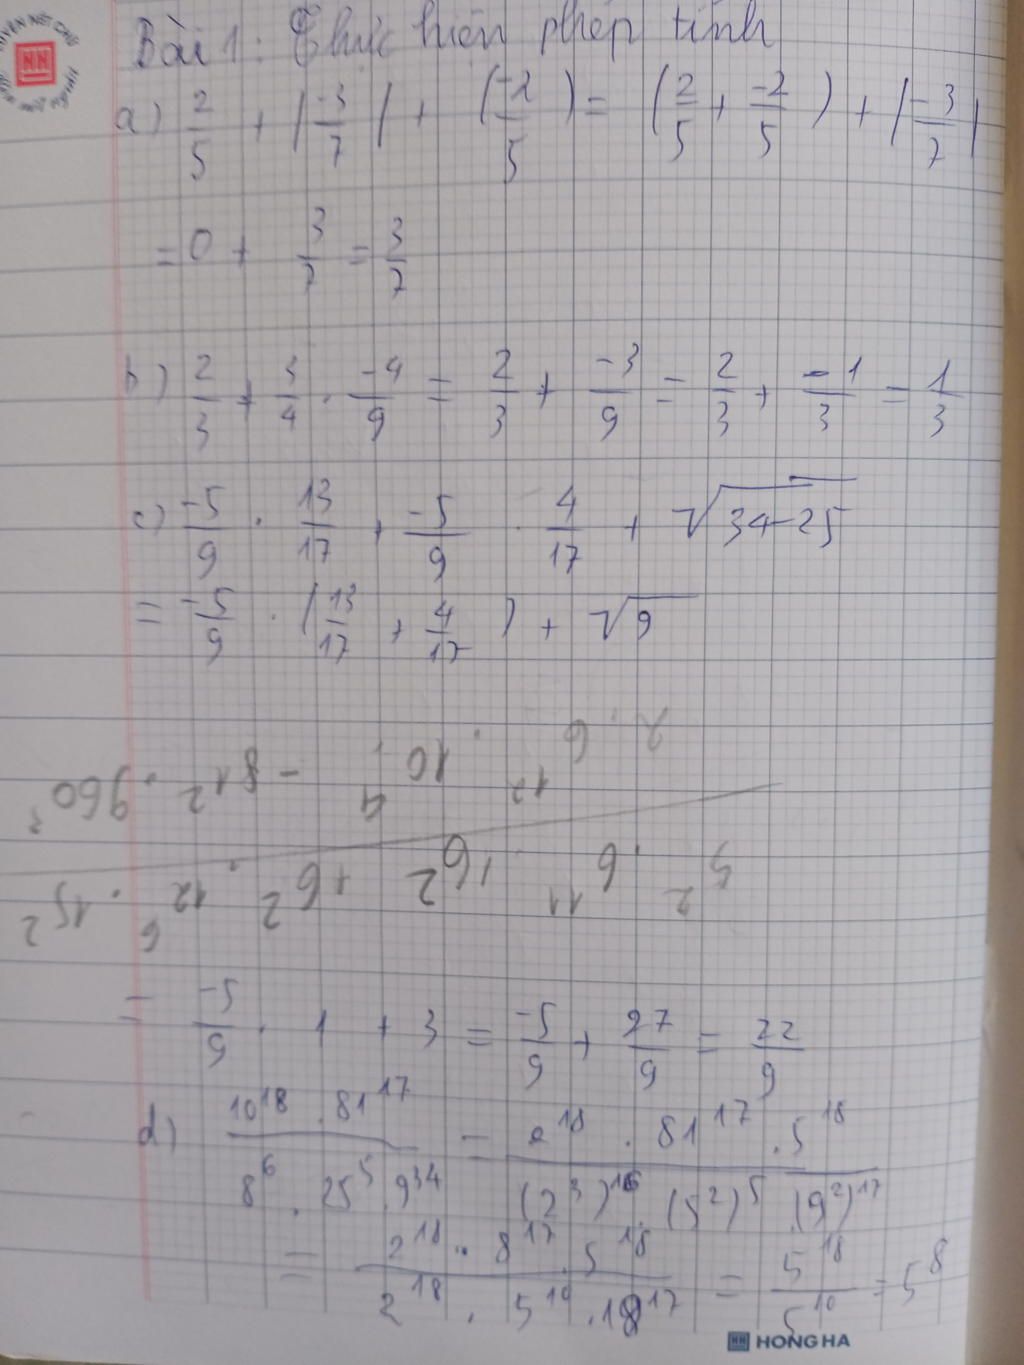 Bài 1: Thực hiện phép tính
a) 2/5 + |-3/7| + (-2/5) = (2/5 + -2/5) + |-3/7|
= 0 + 3/7 = 3/7
b) 2/3 + 3/4 . -4/9 = 2/3 + -3/9 = 2/3 + -1/3 = 1/3
c) -5/9 . 13/17 + -5/9 . 4/17 + √(34-25)
= -5/9 . (13/17 + 4/17) + √9
= -5/9 . 1 + 3 = -5/9 + 27/9 = 22/9
d) 10^18 . 81^17 / 8^6 . 25^5 . 9^34 = 2^18 . 81^17 . 5^18 / (2^3)^16 . (5^2)^5 . (9^2)^17
= 2^18 . 8^17 . 5^18 / 2^18 . 5^10 . 18^17 = 5^18 / 5^10 = 5^8
HONG HA